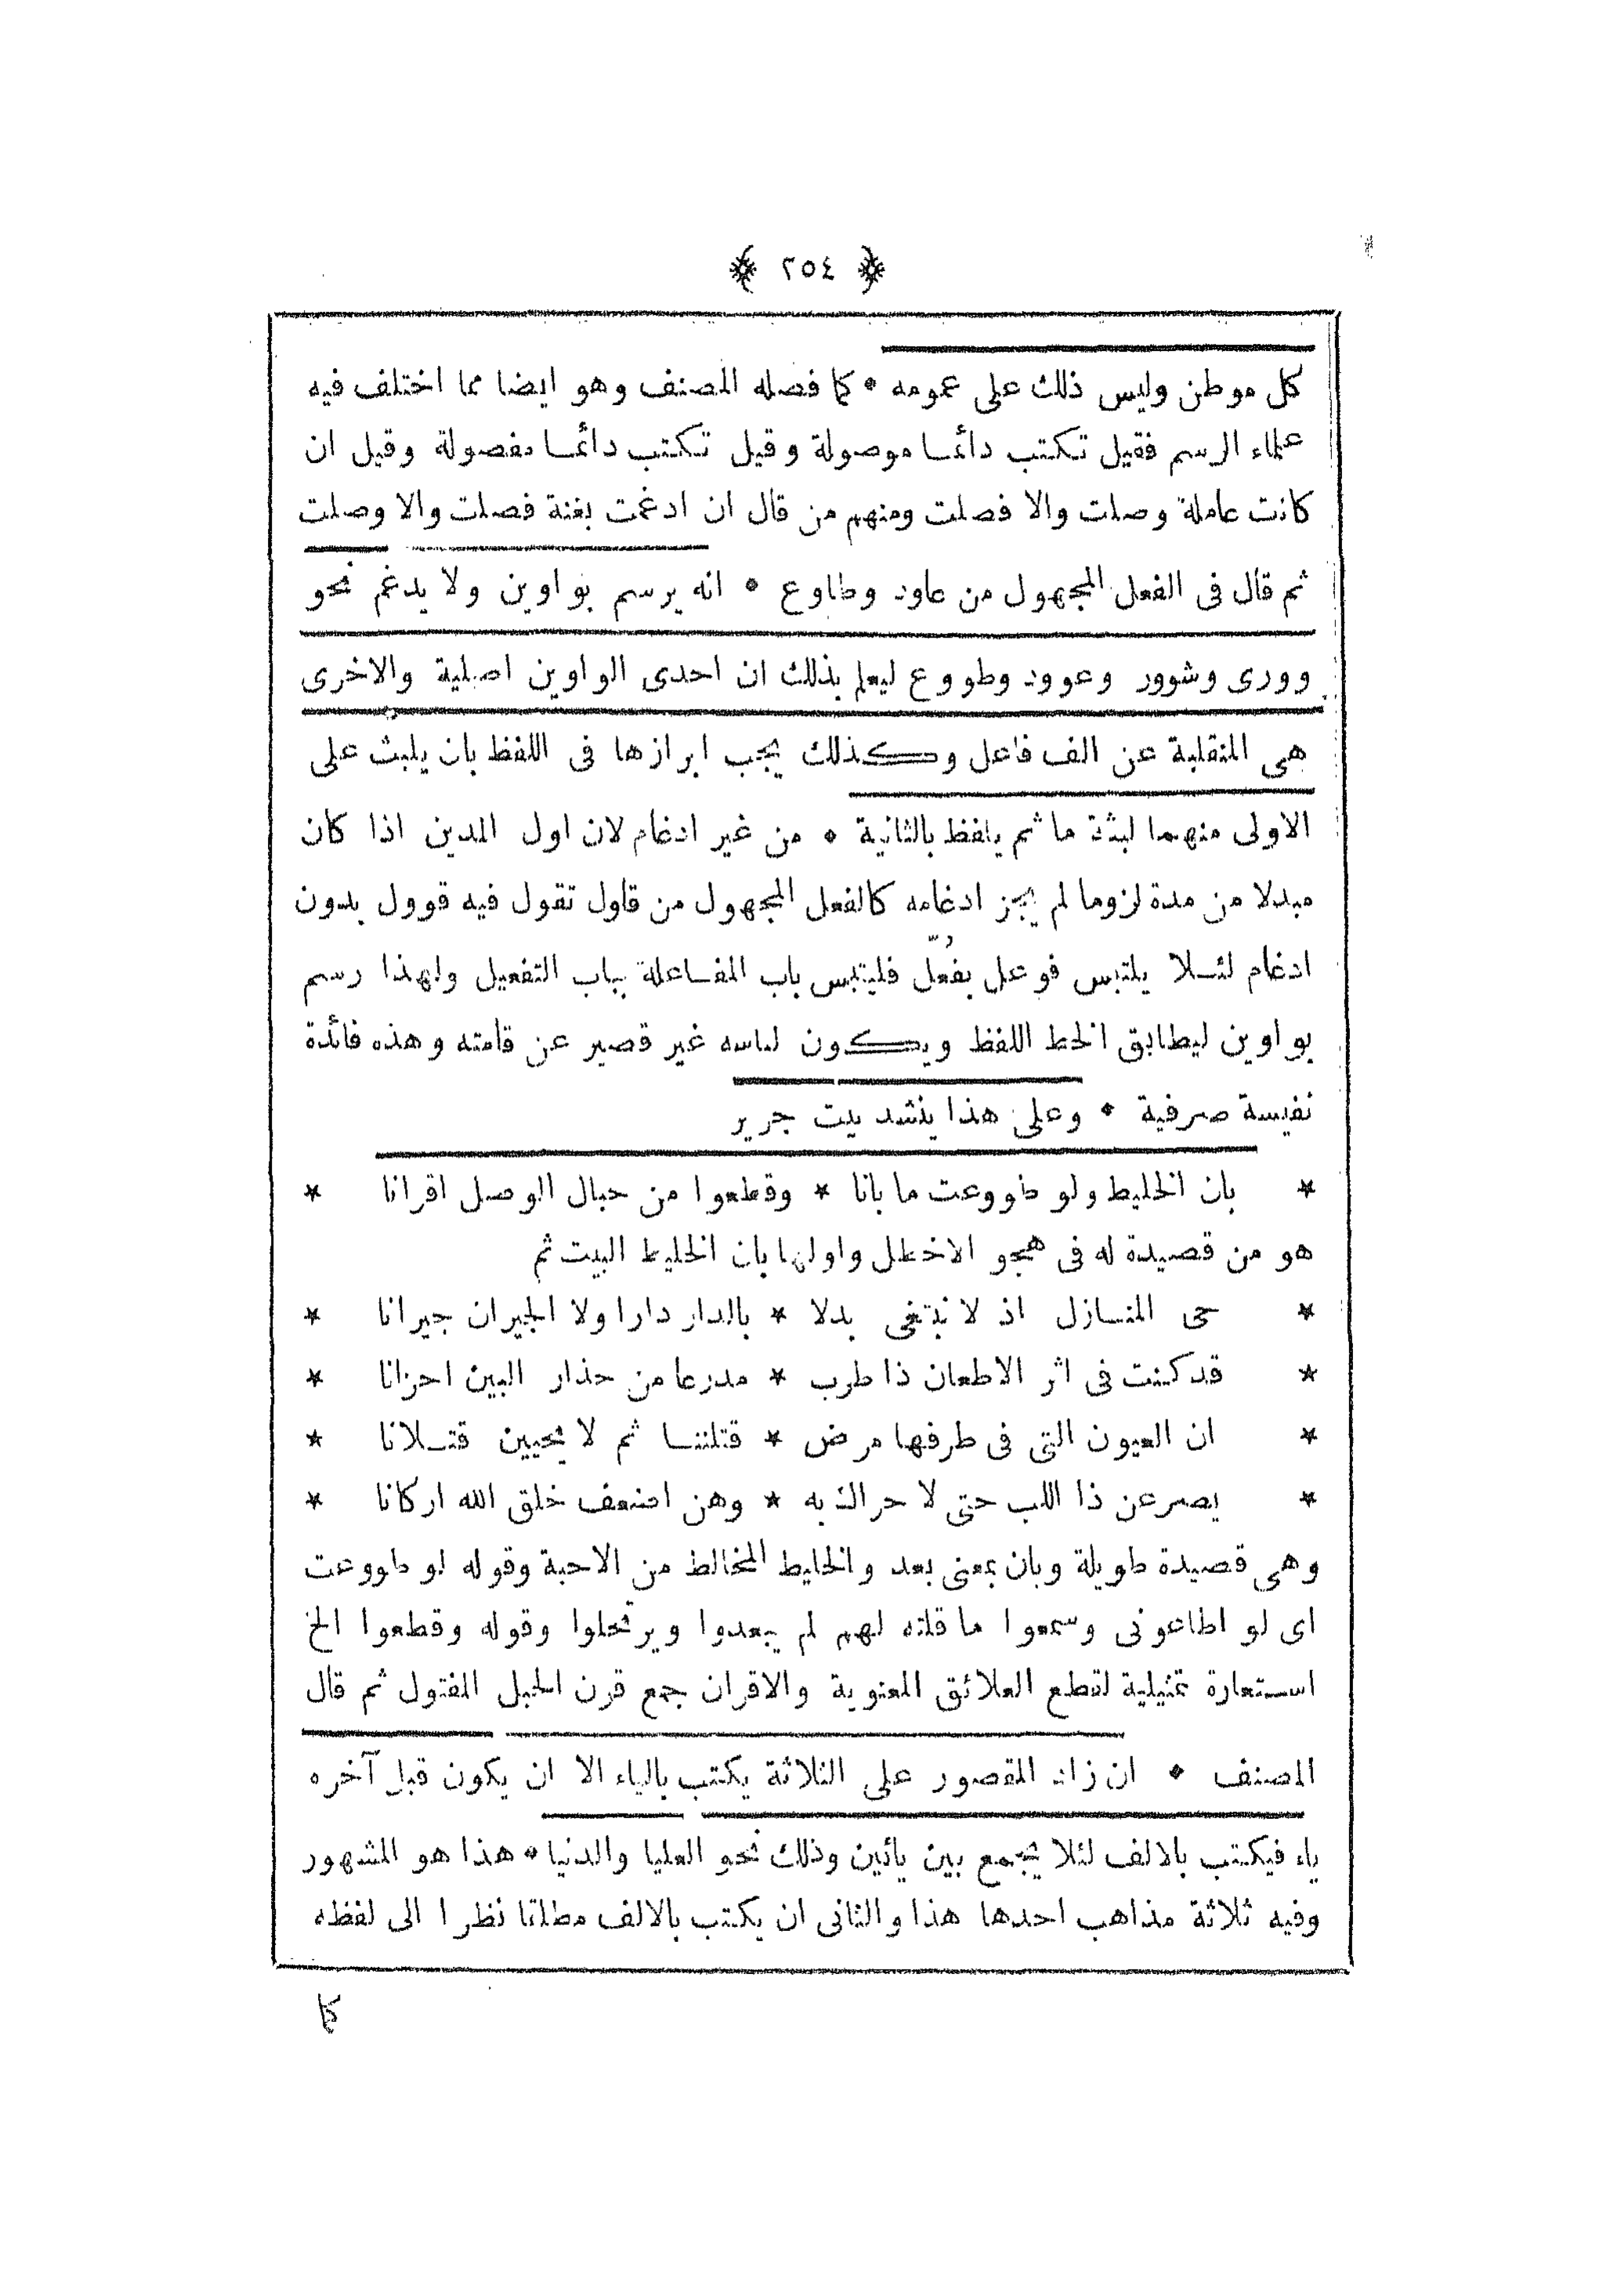 ﴿ ٢٥٤ ﴾
كل موطن وليس ذلك على عمومه * كما فصله المصنف وهو ايضا مما اختلف فيه
علماء الرسم فقيل تكتب دائما موصولة وقيل تكتب دائما مفصولة وقيل ان
كانت عاملة وصلت والا فصلت ومنهم من قال ان ادغمت بغنة فصلت والا وصلت
ثم قال فى الفعل المجهول من عاود وطاوع * انه يرسم بواوين ولا يدغم نحو
وورى وشوور وعوود وطووع ليعلم بذلك ان احدى الواوين اصلية والاخرى
هى المنقلبة عن الف فاعل وكذلك يجب ابرازها فى اللفظ بان يلبث على
الاولى منهما لبثة ما ثم يلفظ بالثانية * من غير ادغام لان اول المدين اذا كان
مبدلا من مدة لزوما لم يجز ادغامه كالفعل المجهول من قاول تقول فيه قوول بدون
ادغام لئلا يلتبس فوعل بفُعّل فليتبس باب المفاعلة بباب التفعيل ولهذا رسم
بواوين ليطابق الخط اللفظ ويكون لباسه غير قصير عن قامته وهذه فائدة
نفيسة صرفية * وعلى هذا ينشد بيت جرير
* بان الخليط ولو طووعت ما بانا * وقطعوا من حبال الوصل اقرانا *
هو من قصيدة له فى هجو الاخطل واولها بان الخليط البيت ثم
* حى المنازل اذ لا نبتغى بدلا * بالدار دارا ولا الجيران جيرانا *
* قد كنت فى اثر الاظعان ذا طرب * مدرعا من حذار البين احزانا *
* ان العيون التى فى طرفها مرض * قتلننا ثم لا يحيين قتلانا *
* يصرعن ذا اللب حتى لا حراك به * وهن اضعف خلق الله اركانا *
وهى قصيدة طويلة وبان بمعنى بعد والخليط المخالط من الاحبة وقوله لو طووعت
اى لو اطاعونى وسمعوا ما قلته لهم لم يبعدوا ويرتحلوا وقوله وقطعوا الخ
استعارة تمثيلية لقطع العلائق المعنوية والاقران جمع قرن الحبل المفتول ثم قال
المصنف * ان زاد المقصور على الثلاثة يكتب بالياء الا ان يكون قبل آخره
ياء فيكتب بالالف لئلا يجمع بين يائين وذلك نحو العليا والدنيا * هذا هو المشهور
وفيه ثلاثة مذاهب احدها هذا والثانى ان يكتب بالالف مطلقا نظرا الى لفظه
كما